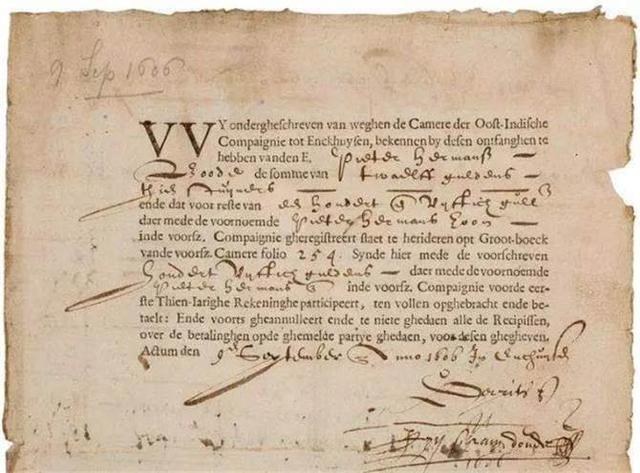 9 Sep 1606
VVY ondergheschreven van weghen de Camere der Oost-Indische
Compaignie tot Enckhuysen, bekennen by desen ontfanghen te
hebben vanden E. Pieter Hermansz
Boode de somme van twaelff guldens
ende dat voor reste van hondert Vyftich gull
daer mede de voornoemde Pieter Hermans zoon
inde voorsz. Compaignie gheregistreert staet te herideren opt Groot-boeck
vande voorsz. Camere folio 254. Synde hier mede de voorschreven
hondert Vyftich guldens daer mede de voornoemde
Pieter Hermans inde voorsz. Compaignie voorde eer-
ste Thien-Iarighe Rekeninghe participeert, ten vollen opghebracht ende be-
taelt: Ende voorts gheannulleert ende te niete ghedaen alle de Recipissen,
over de betalinghen opde ghemelde partye ghedaen, voor desen ghegheven.
Actum den 9 September Anno 1606